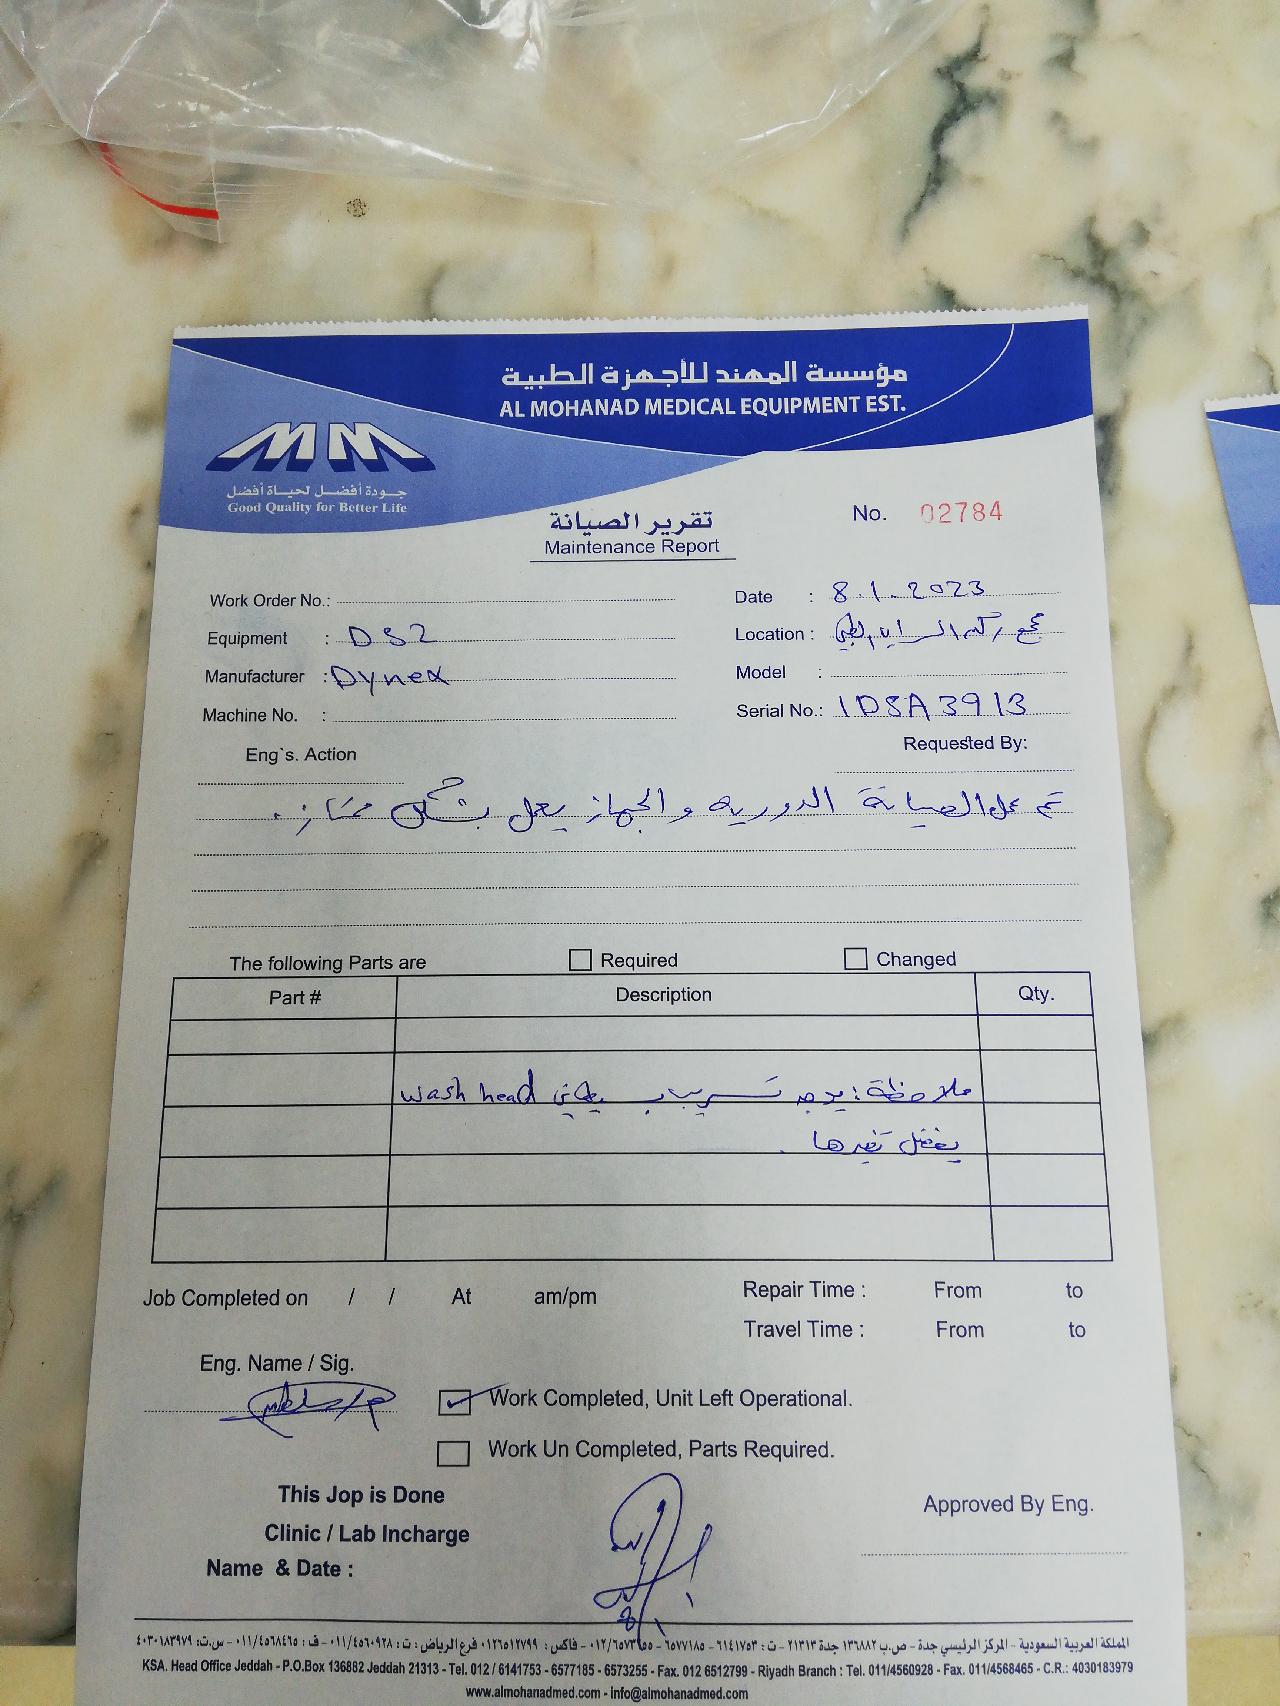 مؤسسة المهند للأجهزة الطبية
AL MOHANAD MEDICAL EQUIPMENT EST.
MM
جـودة أفضـل لحيـاة أفضل
Good Quality for Better Life
تقرير الصيانة
Maintenance Report
No. 02784
Work Order No.:
Date : 8.1.2023
Equipment : DS2
Location : مجمع
Manufacturer : Dynex
Model :
Machine No. :
Serial No.: 1DSA3913
Eng`s. Action
Requested By:
تم عمل الصيانة الدورية والجهاز يعمل بشكل ممتاز.
The following Parts are Required Changed
Part # Description Qty.
ملاحظة: يوجد تسريب wash head
يفضل تغيرها.
Job Completed on / / At am/pm
Repair Time : From to
Travel Time : From to
Eng. Name / Sig.
Work Completed, Unit Left Operational.
Work Un Completed, Parts Required.
This Jop is Done
Clinic / Lab Incharge
Name & Date :
Approved By Eng.
المملكة العربية السعودية - المركز الرئيسي جدة - ص.ب ١٣٦٨٨٢ جدة ٢١٣١٣ - ت : ٦١٤١٧٥٣ - ٦٥٧٧١٨٥ - ٠١٢/٦٥٧٣٢٥٥ - فاكس : ٠١٢٦٥١٢٧٩٩ فرع الرياض : ت : ٠١١/٤٥٦٠٩٢٨ - ف : ٠١١/٤٥٦٨٤٦٥ - س.ت: ٤٠٣٠١٨٣٩٧٩
KSA. Head Office Jeddah - P.O.Box 136882 Jeddah 21313 - Tel. 012 / 6141753 - 6577185 - 6573255 - Fax. 012 6512799 - Riyadh Branch : Tel. 011/4560928 - Fax. 011/4568465 - C.R.: 4030183979
www.almohanadmed.com - info@almohanadmed.com